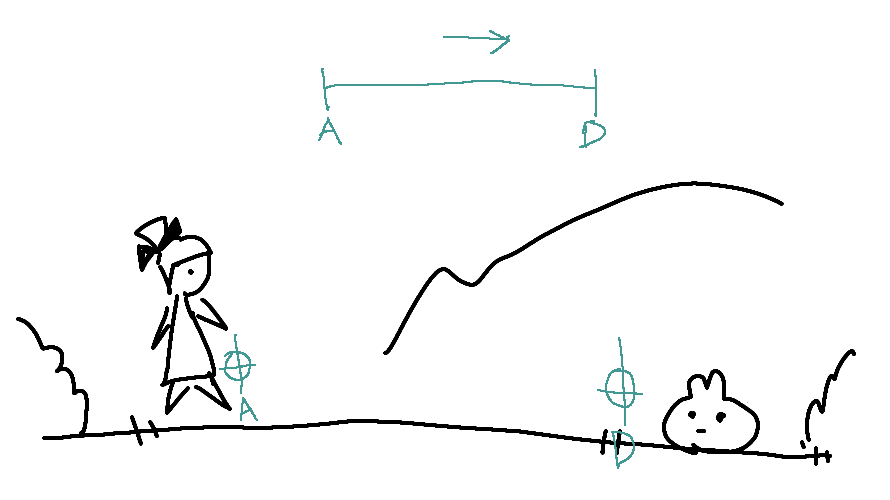 A D
A
D